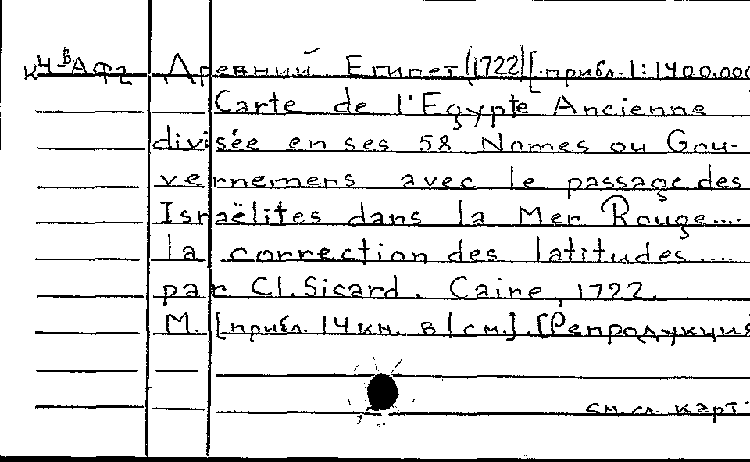 К Ч ᴮ АФ2 Древний Египет (1722) [прибл. 1:1400.000
Carte de l'Egypte Ancienne
divisée en ses 58 Nomes ou Gou-
vernemens avec le passage des
Israëlites dans la Mer Rouge....
la correction des latitudes ....
par Cl. Sicard. Caire, 1722.
М. [прибл. 14 км. в 1 см.]. [Репродукция
см. сл. карт